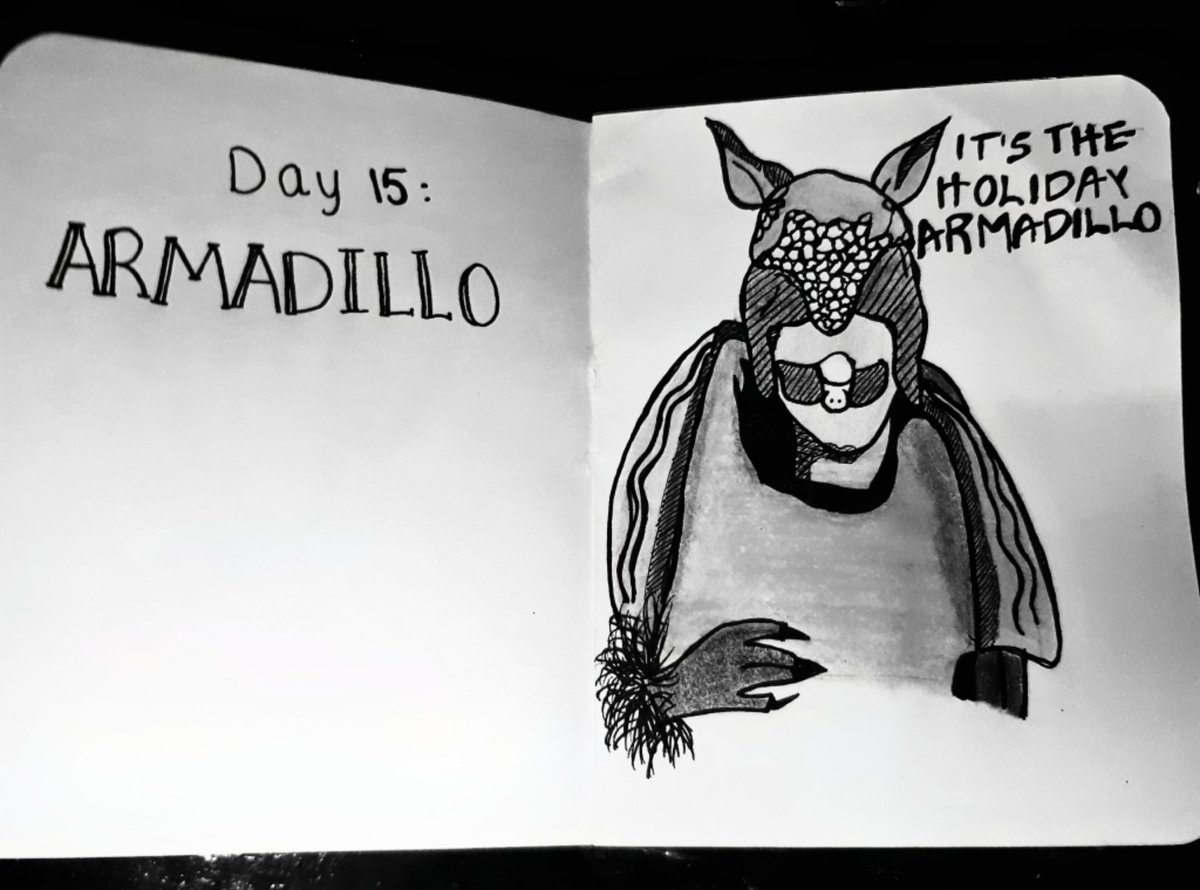 Day 15:
ARMADILLO
IT'S THE
HOLIDAY
ARMADILLO